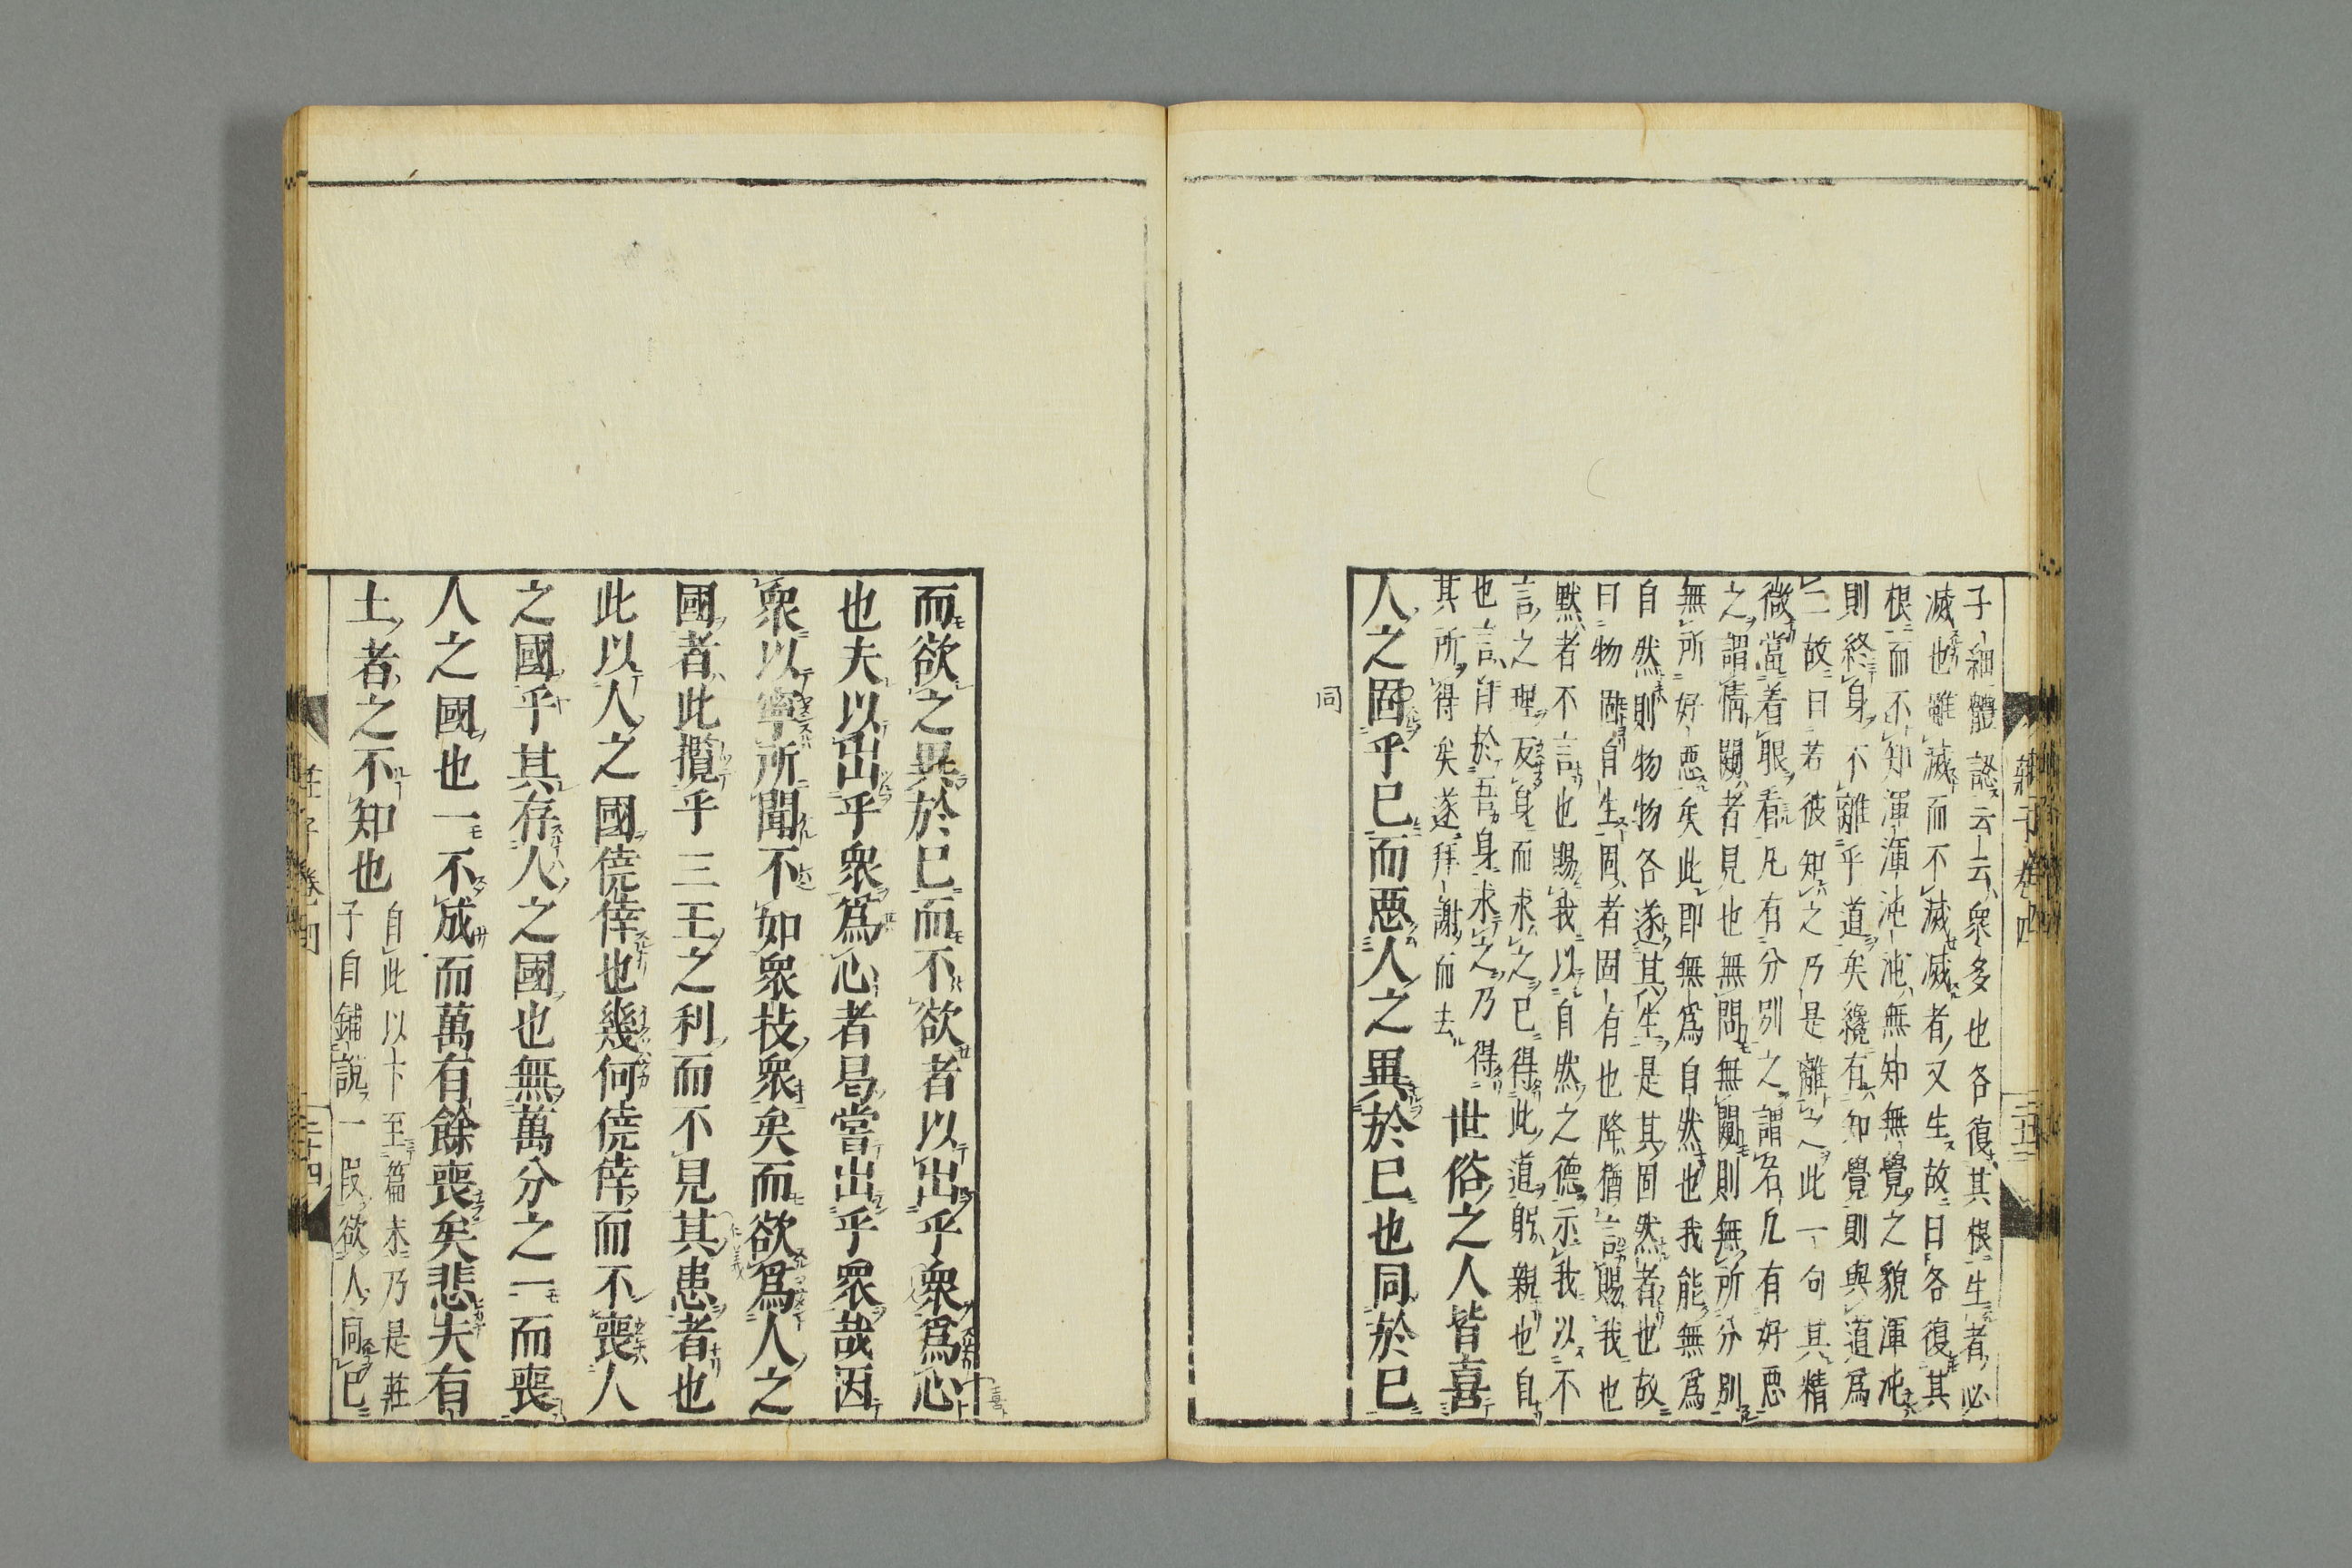 子細體認云云衆多也各復其根生者必
滅也雖滅而不滅滅者又生故曰各復其
根而不知渾渾沌沌無知無覺之貌渾沌
則終身不離乎道矣纔有知覺則與道爲
二故曰若彼知之乃是離之此一句其精
微當着眼看凡有分別之謂名凡有好惡
之謂情闚者見也無問無闚則無所分別
無所好惡矣此即無爲自然也我能無爲
自然則物物各遂其生是其固然者也故
曰物固自生固者固有也降猶言賜我也
默者不言也賜我以自然之德示我以不
言之理反身而求之已得此道躬親也自
也言自於吾身求之乃得 世俗之人皆喜
其所得矣遂拜謝而去
人之同乎已而惡人之異於已也同於已
同
而欲之異於已而不欲者以出乎衆爲心
也夫以出乎衆爲心者曷嘗出乎衆哉因
衆以寧所聞不如衆技衆矣而欲爲人之
國者此攬乎三王之利而不見其患者也
此以人之國僥倖也幾何僥倖而不喪人
之國乎其存人之國也無萬分之一而喪
人之國也一不成而萬有餘喪矣悲夫有
土者之不知也 自此以下至篇末乃是莊
子自鋪說一段欲人同已
莊子卷四
三十四